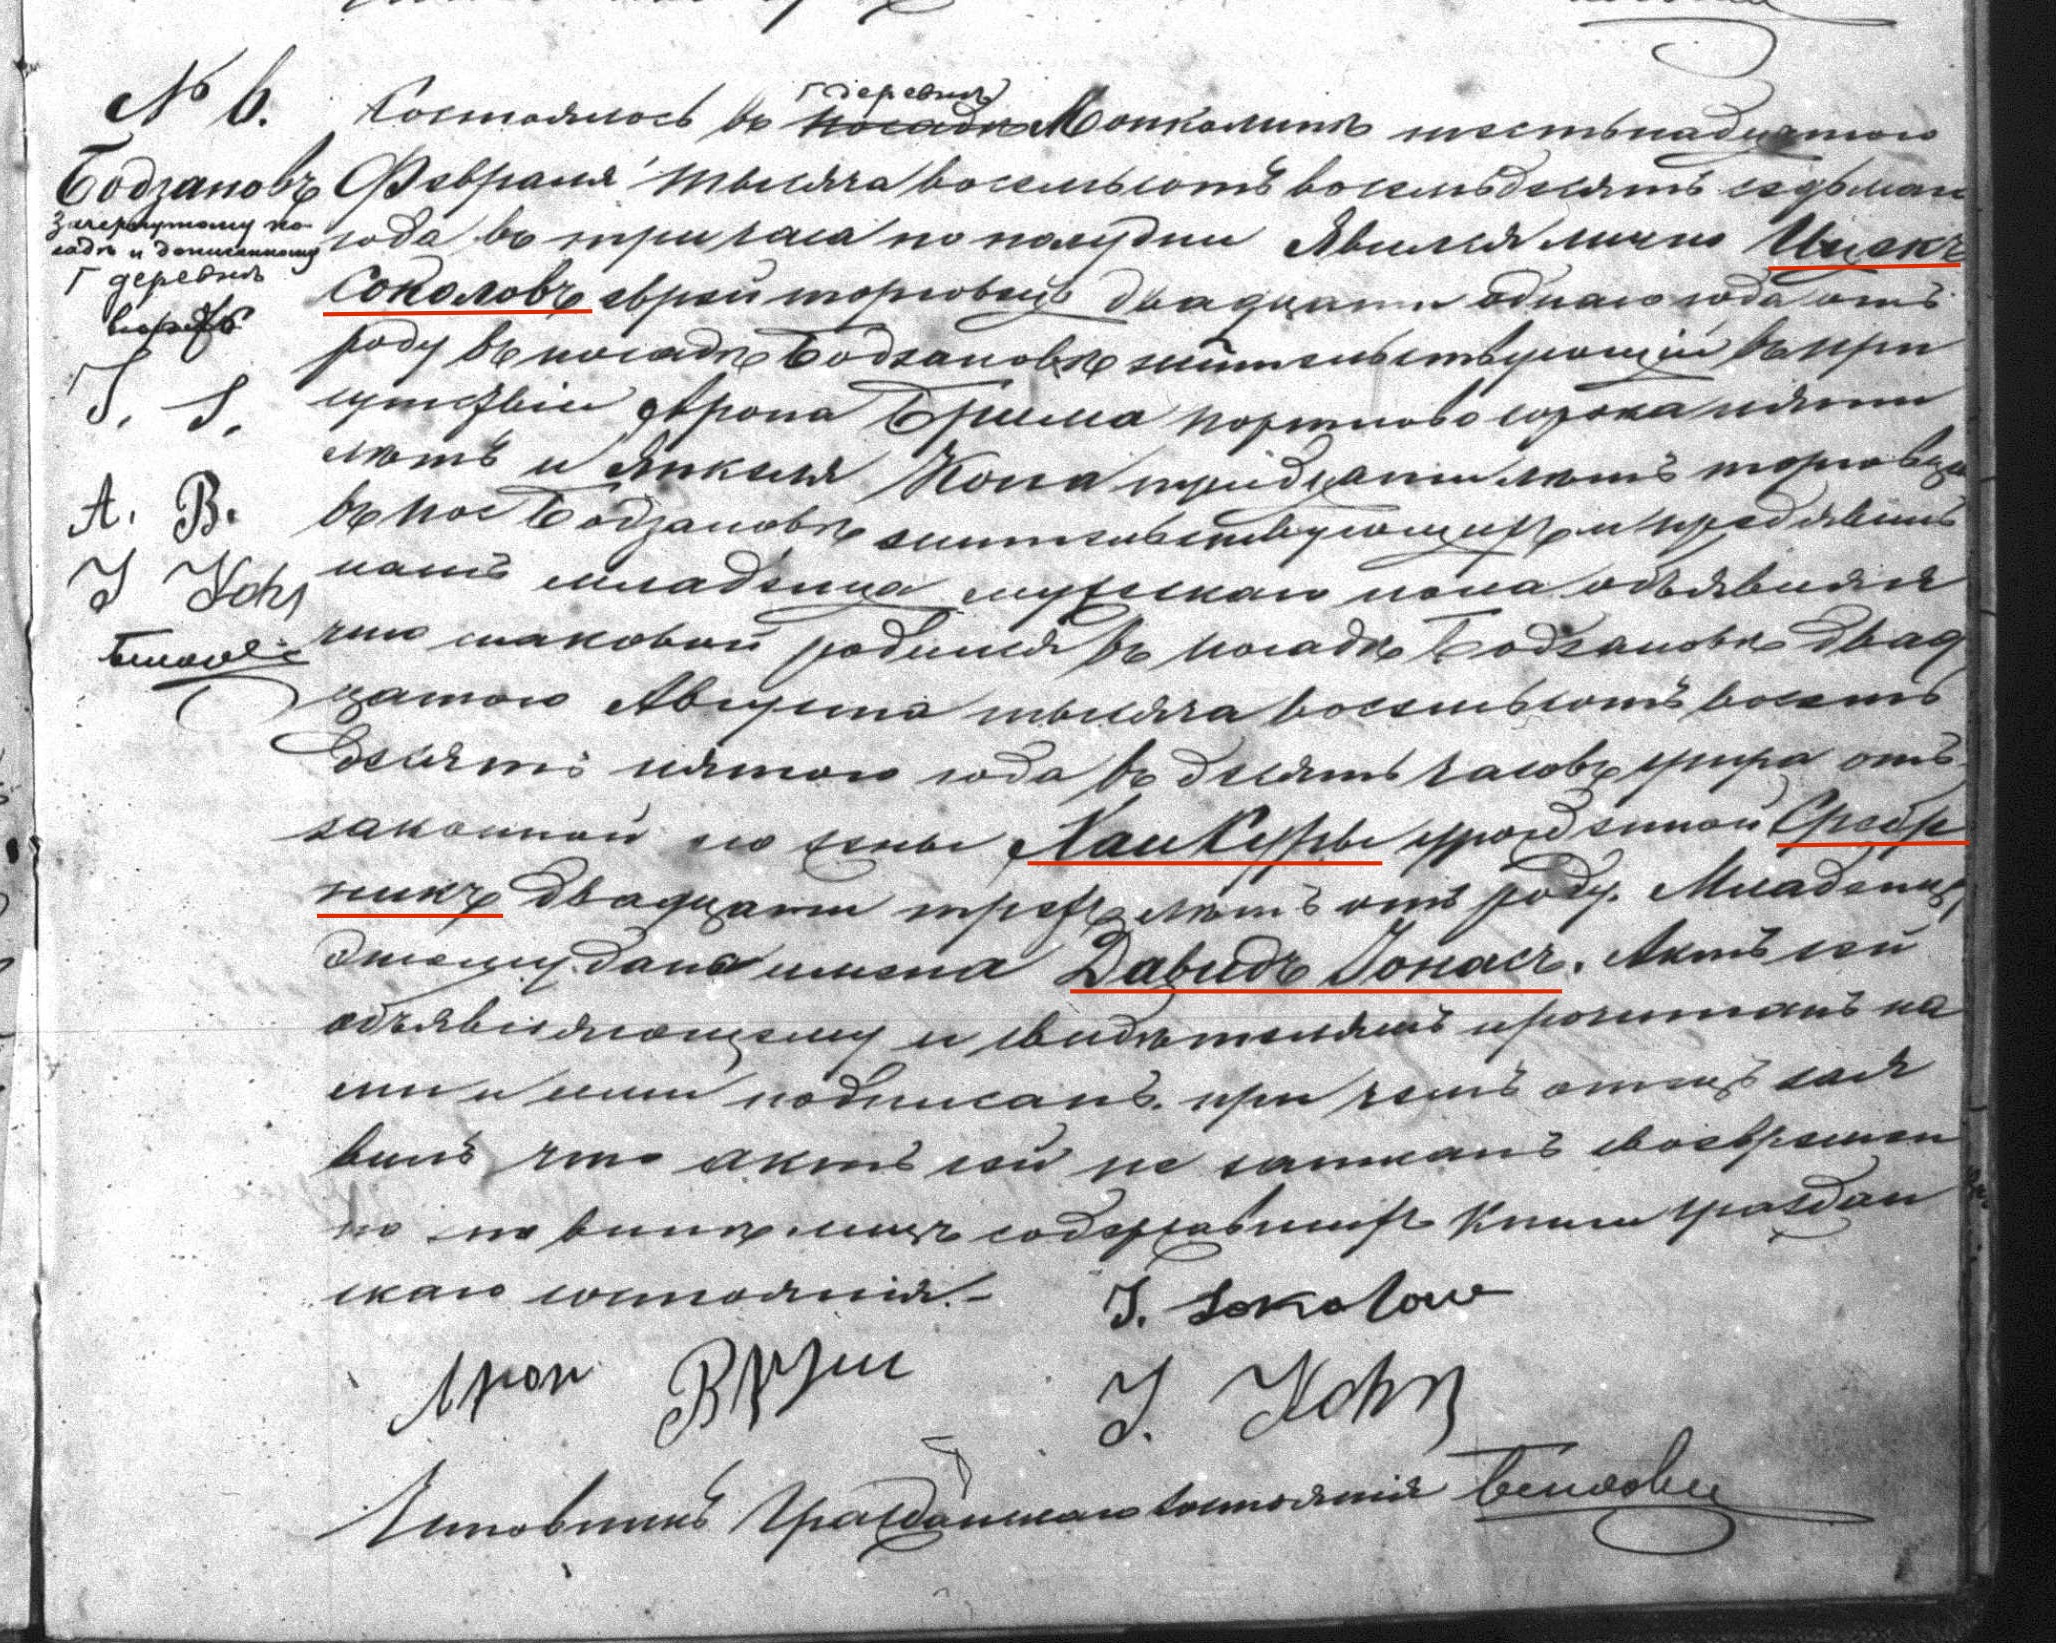 № 6.
Бодзановъ
Зачеркнутому по-
садѣ и дописанному
деревнѣ
вѣрить
I. S.
A. B.
I Kohn
деревнѣ
Состоялось въ посадѣ Монколинѣ шестьнадцатого
Февраля тысяча восемьсотъ восемьдесятъ седьмаго
года въ три часа по полудни Явился лично Ицекъ
Соколовъ еврей торговецъ двадцати однаго года отъ
роду въ посадѣ Бодзановѣ жительствующій въ при
сутствіи Арона Брыма портнова сорока пяти
лѣтъ и Янкеля Кона тридцати лѣтъ торговца
въ пос Бодзановѣ жительствующихъ и предъявилъ
намъ младенца мужескаго пола объявляя
что таковой родился въ посадѣ Бодзановѣ двад
цатого Августа тысяча восемьсотъ восемь
десятъ пятого года въ десять часовъ утра отъ
законной его жены Хаи Суры урожденной Сребр
никъ двадцати трехъ лѣтъ отъ роду. Младенцу
этому дано имена Давидъ Іонасъ. Актъ сей
объявляющему и свидѣтелямъ прочитанъ на
ми и ими подписанъ. при чемъ отецъ зая
вилъ что актъ сей не записанъ своевремен
но по винѣ лицъ содержавшихъ книги граждан
скаго состоянія.-
I. Sokolow
Aron Brym
I. Kohn
Чиновникъ Гражданскаго Состоянія